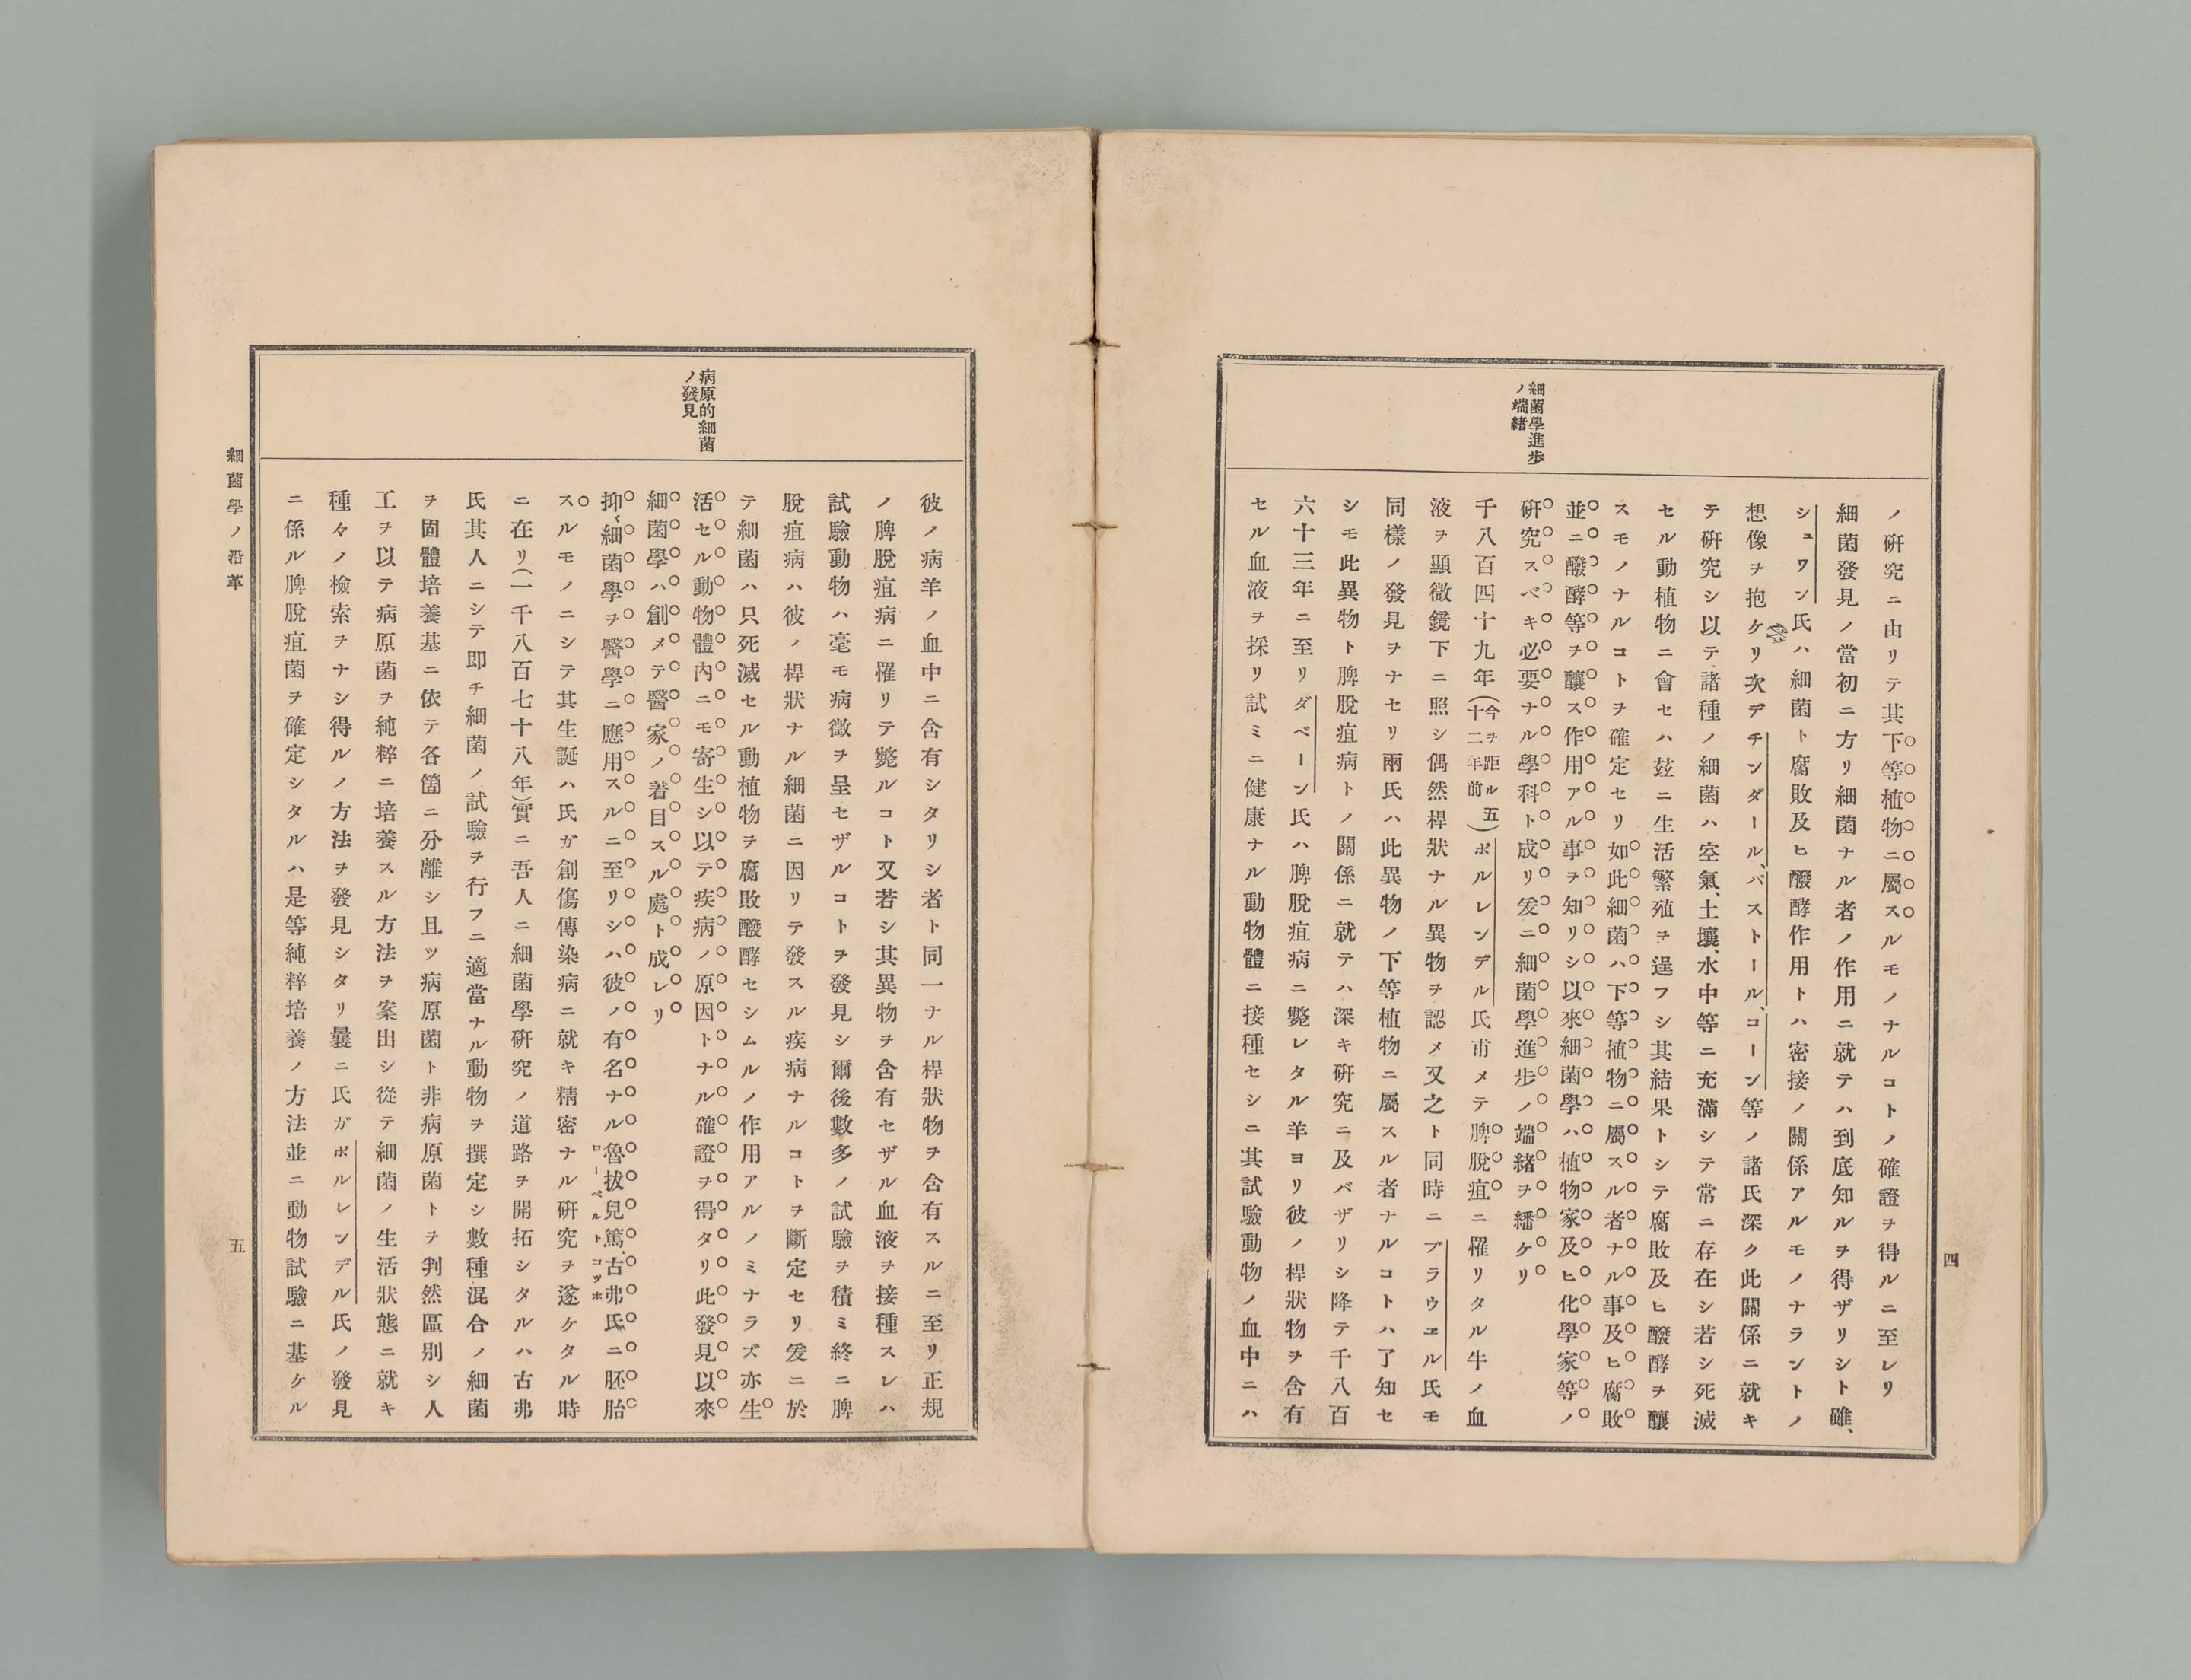 細菌學進步
ノ端緒
ノ硏究ニ由リテ其下等植物ニ屬スルモノナルコトノ確證ヲ得ルニ至レリ
細菌發見ノ當初ニ方リ細菌ナル者ノ作用ニ就テハ到底知ルヲ得ザリシト雖、
シュワン氏ハ細菌ト腐敗及ヒ醱酵作用トハ密接ノ關係アルモノナラントノ
想像ヲ抱ケリ次デチンダール、パストール、コーン等ノ諸氏深ク此關係ニ就キ
テ硏究シ以テ諸種ノ細菌ハ空氣、土壤、水中等ニ充滿シテ常ニ存在シ若シ死滅
セル動植物ニ會セハ玆ニ生活繁殖ヲ逞フシ其結果トシテ腐敗及ヒ醱酵ヲ釀
スモノナルコトヲ確定セリ如此細菌ハ下等植物ニ屬スル者ナル事及ヒ腐敗
並ニ醱酵等ヲ釀ス作用アル事ヲ知リシ以來細菌學ハ植物家及ヒ化學家等ノ
硏究スベキ必要ナル學科ト成リ爰ニ細菌學進步ノ端緖ヲ繙ケリ
千八百四十九年(今ヲ距ル五十二年前)ポルレンデル氏甫メテ脾脫疽ニ罹リタル牛ノ血
液ヲ顯微鏡下ニ照シ偶然桿狀ナル異物ヲ認メ又之ト同時ニブラウエル氏モ
同樣ノ發見ヲナセリ兩氏ハ此異物ノ下等植物ニ屬スル者ナルコトハ了知セ
シモ此異物ト脾脫疽病トノ關係ニ就テハ深キ硏究ニ及バザリシ降テ千八百
六十三年ニ至リダベーン氏ハ脾脫疽病ニ斃レタル羊ヨリ彼ノ桿狀物ヲ含有
セル血液ヲ採リ試ミニ健康ナル動物體ニ接種セシニ其試驗動物ノ血中ニハ
四
病原的細菌
ノ發見
彼ノ病羊ノ血中ニ含有シタリシ者ト同一ナル桿狀物ヲ含有スルニ至リ正規
ノ脾脫疽病ニ罹リテ斃ルコト又若シ其異物ヲ含有セザル血液ヲ接種スレハ
試驗動物ハ毫モ病徵ヲ呈セザルコトヲ發見シ爾後數多ノ試驗ヲ積ミ終ニ脾
脫疽病ハ彼ノ桿狀ナル細菌ニ因リテ發スル疾病ナルコトヲ斷定セリ爰ニ於
テ細菌ハ只死滅セル動植物ヲ腐敗醱酵セシムルノ作用アルノミナラズ亦生
活セル動物體內ニモ寄生シ以テ疾病ノ原因トナル確證ヲ得タリ此發見以來
細菌學ハ創メテ醫家ノ着目スル處ト成レリ
抑〻細菌學ヲ醫學ニ應用スルニ至リシハ彼ノ有名ナル魯拔兒篤、古弗氏ニ胚胎
ローベルトコッホ
スルモノニシテ其生誕ハ氏ガ創傷傳染病ニ就キ精密ナル硏究ヲ遂ケタル時
ニ在リ(一千八百七十八年)實ニ吾人ニ細菌學硏究ノ道路ヲ開拓シタルハ古弗
氏其人ニシテ卽チ細菌ノ試驗ヲ行フニ適當ナル動物ヲ撰定シ數種混合ノ細菌
ヲ固體培養基ニ依テ各箇ニ分離シ且ツ病原菌ト非病原菌トヲ判然區別シ人
工ヲ以テ病原菌ヲ純粹ニ培養スル方法ヲ案出シ從テ細菌ノ生活狀態ニ就キ
種々ノ檢索ヲナシ得ルノ方法ヲ發見シタリ曩ニ氏ガポルレンデル氏ノ發見
ニ係ル脾脫疽菌ヲ確定シタルハ是等純粹培養ノ方法並ニ動物試驗ニ基ケル
細菌學ノ沿革
五